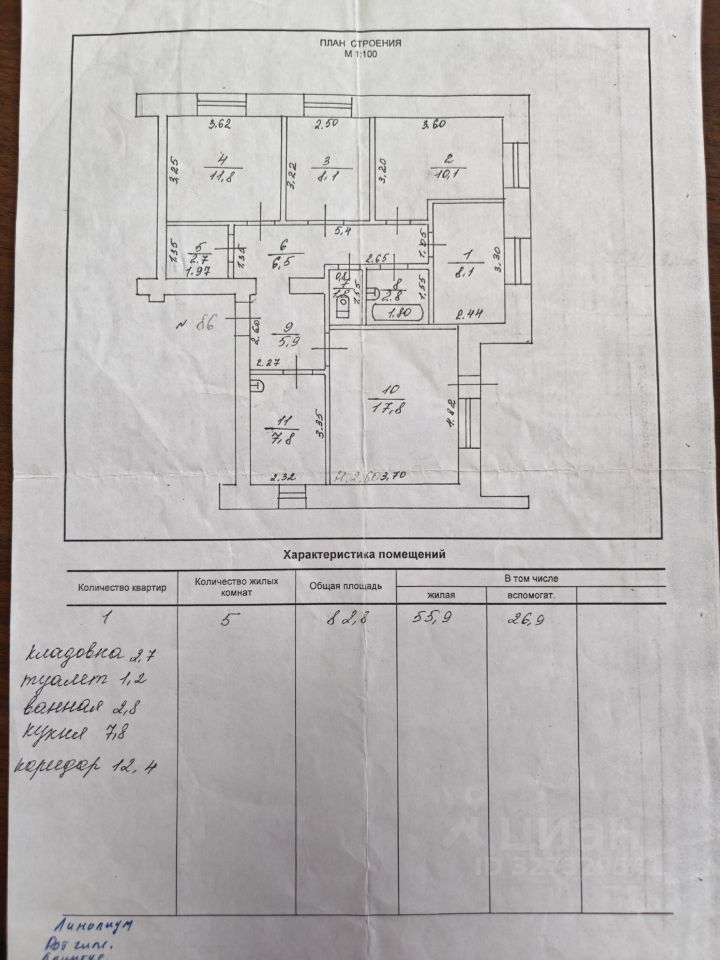 ПЛАН СТРОЕНИЯ
М 1:100
3,62 2.50 3.60
3,25 4 11,8 3,22 3 8,1 3,20 2 10,1
5,4
1.35 5 2.7 1.97 1.35 6 6,5 2.65 1.05 1 8,1 3,30
8 2.8 1.55 1.80 2.44
№ 86 2.60 9 5,9
2.27
10 17,8 4.82
11 7,8 3.35
2.32 H. 2,60 3,70
Характеристика помещений
Количество квартир Количество жилых комнат Общая площадь В том числе
жилая вспомогат.
1 5 82,8 55,9 26,9
кладовка 2,7
туалет 1,2
ванная 2,8
кухня 7,8
коридор 12,4
циан
Линолиум